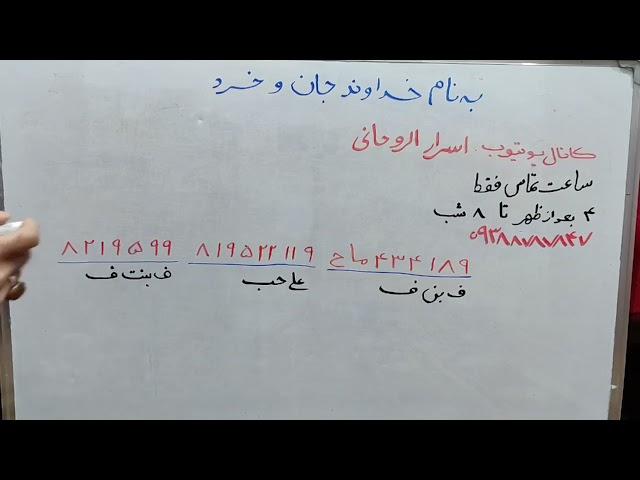 به نام خداوند جان و خرد
کانال یوتیوب: اسرار الروحانی
ساعت تماس فقط
۴ بعد از ظهر تا ۸ شب
۰۹۳۸۸۷۸۷۸۴۷
۴۳۴۱۸۹ماح ۸۱۹۵۲۲۱۱۹ ۸۲۱۹۵۹۹
ف بن ف علی حب ف بنت ف